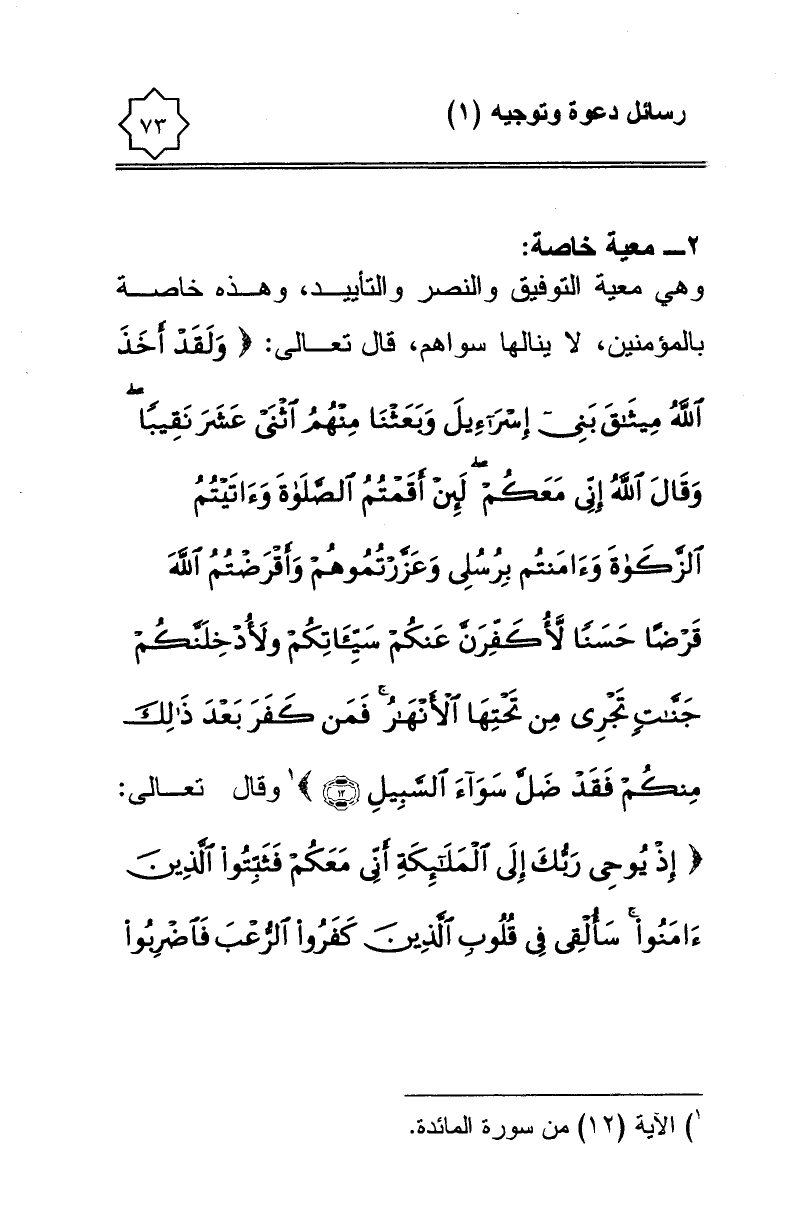 رسائل دعوة وتوجيه (١)
٧٣
٢ــ معية خاصة:
وهي معية التوفيق والنصر والتأييــد، وهــذه خاصــة
بالمؤمنين، لا ينالها سواهم، قال تعــالى: ﴿ وَلَقَدْ أَخَذَ
ٱللَّهُ مِيثَـٰقَ بَنِىٓ إِسْرَٰٓءِيلَ وَبَعَثْنَا مِنْهُمُ ٱثْنَىْ عَشَرَ نَقِيبًا ۖ
وَقَالَ ٱللَّهُ إِنِّى مَعَكُمْ ۖ لَئِنْ أَقَمْتُمُ ٱلصَّلَوٰةَ وَءَاتَيْتُمُ
ٱلزَّكَوٰةَ وَءَامَنتُم بِرُسُلِى وَعَزَّرْتُمُوهُمْ وَأَقْرَضْتُمُ ٱللَّهَ
قَرْضًا حَسَنًا لَّأُكَفِّرَنَّ عَنكُمْ سَيِّـَٔاتِكُمْ وَلَأُدْخِلَنَّكُمْ
جَنَّـٰتٍ تَجْرِى مِن تَحْتِهَا ٱلْأَنْهَـٰرُ ۚ فَمَن كَفَرَ بَعْدَ ذَٰلِكَ
مِنكُمْ فَقَدْ ضَلَّ سَوَآءَ ٱلسَّبِيلِ ١٢ ﴾¹ وقال تعــالى:
﴿ إِذْ يُوحِى رَبُّكَ إِلَى ٱلْمَلَـٰٓئِكَةِ أَنِّى مَعَكُمْ فَثَبِّتُوا۟ ٱلَّذِينَ
ءَامَنُوا۟ ۚ سَأُلْقِى فِى قُلُوبِ ٱلَّذِينَ كَفَرُوا۟ ٱلرُّعْبَ فَٱضْرِبُوا۟
¹) الآية (١٢) من سورة المائدة.